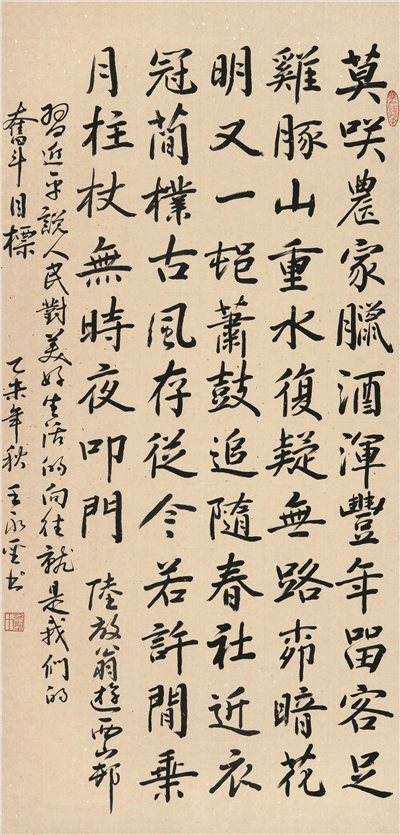 莫咲農家臘酒渾豐年留客足
雞豚山重水復疑無路柳暗花
明又一邨蕭鼓追隨春社近衣
冠簡樸古風存從今若許閒乘
月柱杖無時夜叩門 陸放翁遊西山邨
習近平說人民對美好生活的向往就是我們的
奮斗目標 乙未年秋 王永书